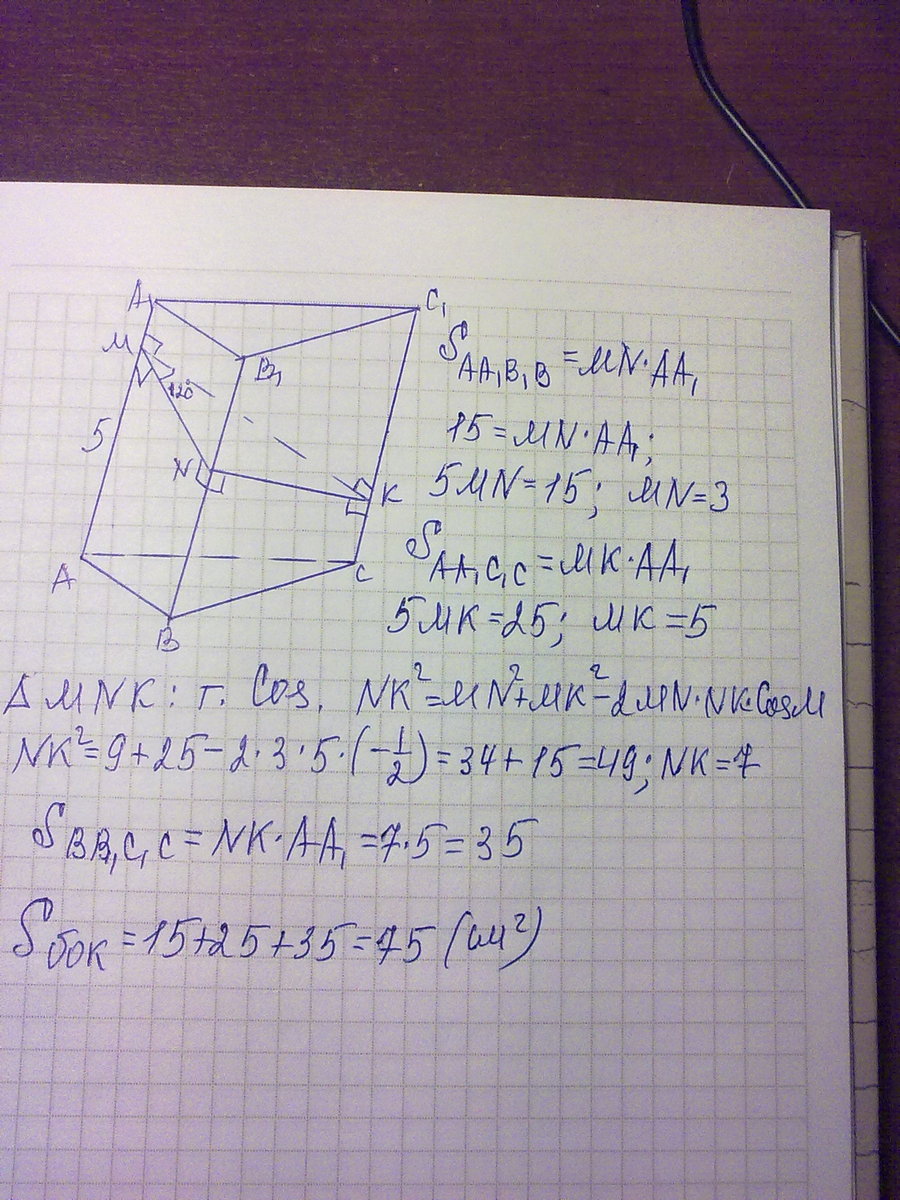 A₁
C₁
M
B₁
120°
5
N
K
A
C
B
S AA₁B₁B = MN·AA₁
15 = MN·AA₁;
5MN = 15; MN = 3
S AA₁C₁C = MK·AA₁
5MK = 25; MK = 5
Δ MNK: т. Cos. NK² = MN² + MK² - 2MN·NK·CosM
NK² = 9 + 25 - 2·3·5·(-1/2) = 34 + 15 = 49; NK = 7
S BB₁C₁C = NK·AA₁ = 7·5 = 35
Sбок = 15 + 25 + 35 = 75 (см²)